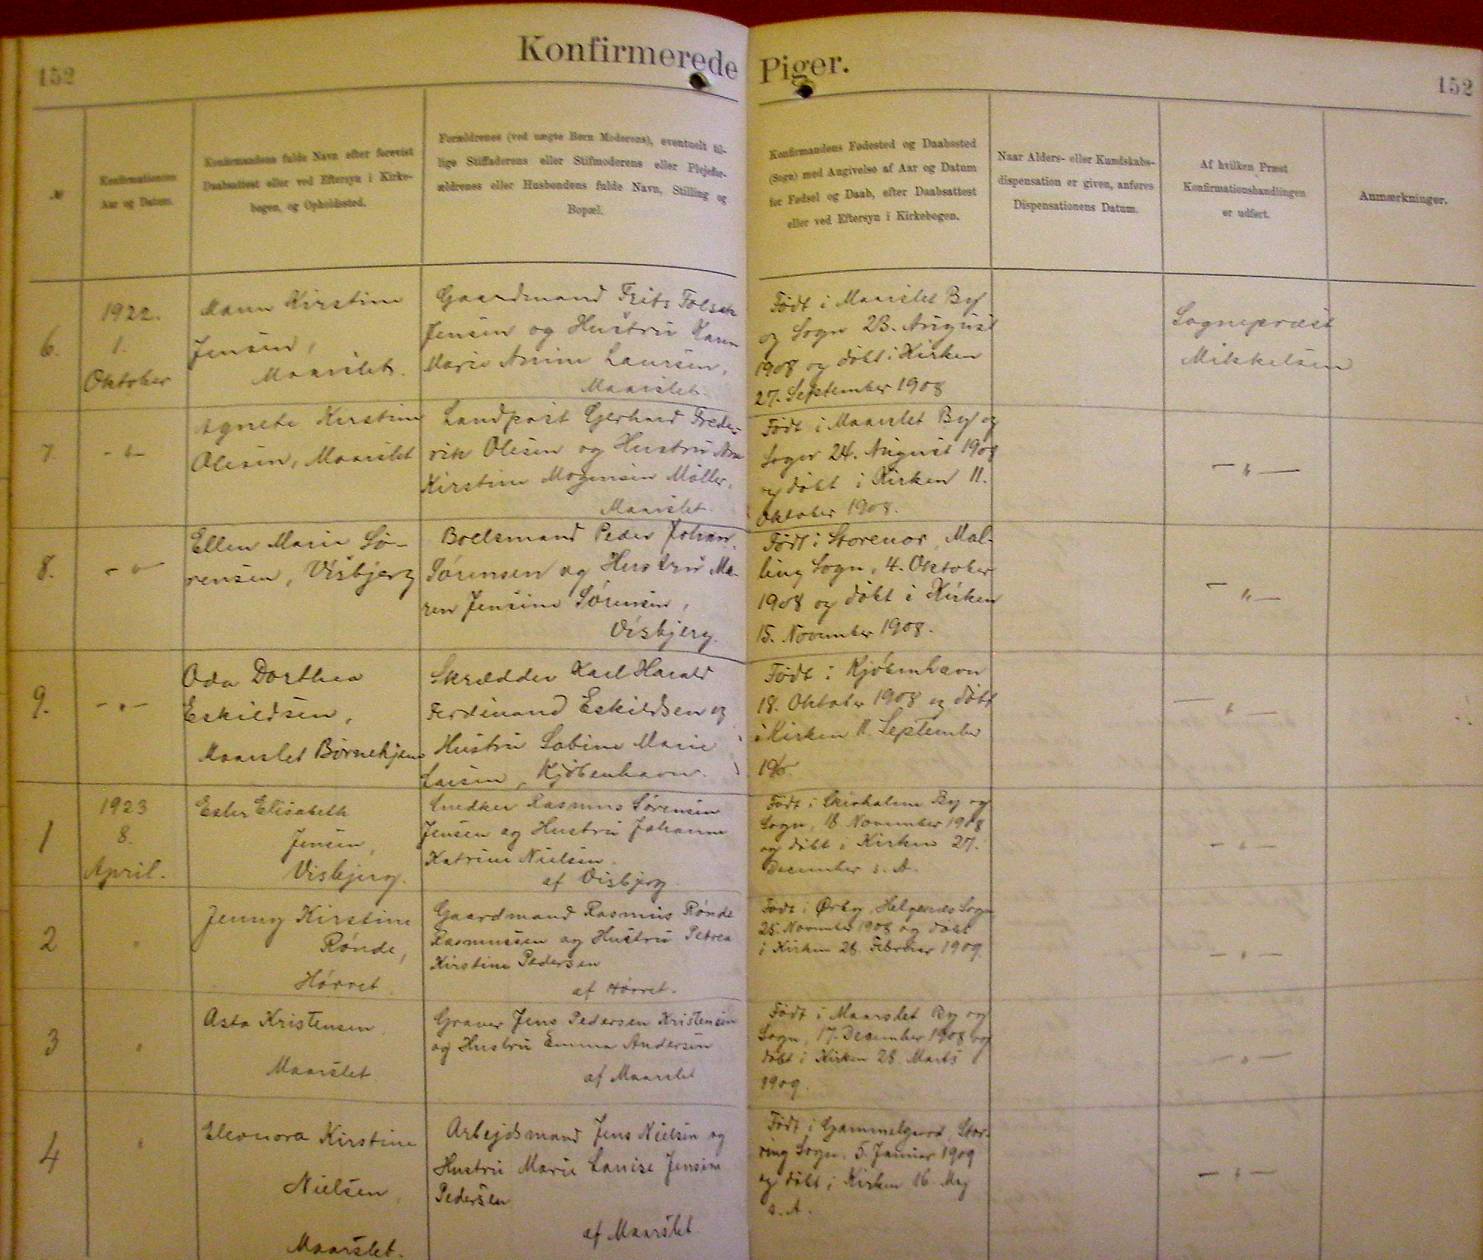 152
Konfirmerede Piger.
152
№
Konfirmationens
Aar og Datum.
Konfirmandens fulde Navn efter forevist
Daabsattest eller ved Eftersyn i Kirke-
bogen, og Opholdssted.
Forældrenes (ved uægte Børn Moderens), eventuelt til-
lige Stiffaderens eller Stifmoderens eller Plejefor-
ældrenes eller Husbondens fulde Navn, Stilling og
Bopæl.
Konfirmandens Fødested og Daabssted
(Sogn) med Angivelse af Aar og Datum
for Fødsel og Daab, efter Daabsattest
eller ved Eftersyn i Kirkebogen.
Naar Alders- eller Kundskabs-
dispensation er given, anføres
Dispensationens Datum.
Af hvilken Præst
Konfirmationshandlingen
er udført.
Anmærkninger.
6.
1922.
1.
Oktober
Kirstine
Jensen,
Maarslet.
Gaardmand Frits
Jensen og Hustru
Marie Laursen,
Maarslet.
Født i Maarslet By
og Sogn 23. August
1908 og døbt i Kirken
27. September 1908
Sognepræst
Mikkelsen
7.
- " -
Agnete Kirstine
Olesen, Maarslet
Landpost Gerhard Frede-
rik Olesen og Hustru
Kirstine Mogensen Møller,
Maarslet.
Født i Maarslet By og
Sogn 24. August 1908
og døbt i Kirken 11.
Oktober 1908.
- " -
8.
- " -
Ellen Marie Sø-
rensen, Visbjerg
Boelsmand Peder Johan
Sørensen og Hustru Ma-
ren Jensine Sørensen,
Visbjerg.
Født i Storenor, Mal-
ling Sogn, 4. Oktober
1908 og døbt i Kirken
15. November 1908.
- " -
9.
- " -
Oda Dorthea
Eskildsen,
Maarslet Børnehjem
Skrædder Karl Harald
Ferdinand Eskildsen og
Hustru Sabine Marie
Larsen, Kjøbenhavn.
Født i Kjøbenhavn
18. Oktober 1908 og døbt
i Kirken 11. September
- " -
1
1923
8.
April.
Ester Elisabeth
Jensen,
Visbjerg.
Snedker Rasmus Sørensen
Jensen og Hustru Johanne
Katrine Nielsen.
af Visbjerg
Født i Skivholme By og
Sogn, 18 November 1908
og døbt i Kirken 27.
December s. A.
- " -
2
"
Jenny Kirstine
Rønde,
Hørret.
Gaardmand Rasmus Rønde
Rasmussen og Hustru Petrea
Kirstine Pedersen
af Hørret.
Født i Ørby, Helgenæs Sogn
25. November 1908 og døbt
i Kirken 28. Februar 1909.
- " -
3
"
Asta Kristensen
Maarslet
Graver Jens Pedersen Kristensen
og Hustru Emma Andersen
af Maarslet
Født i Maarslet By og
Sogn, 17. December 1908 og
døbt i Kirken 28. Marts
1909.
- " -
4
"
Eleonora Kirstine
Nielsen,
Maarslet.
Arbejdsmand Jens Nielsen og
Hustru Marie Louise Jensine
Pedersen
af Maarslet
Født i Gammelgaard, Stor-
ring Sogn, 5. Januar 1909
og døbt i Kirken 16. Maj
s. A.
- " -